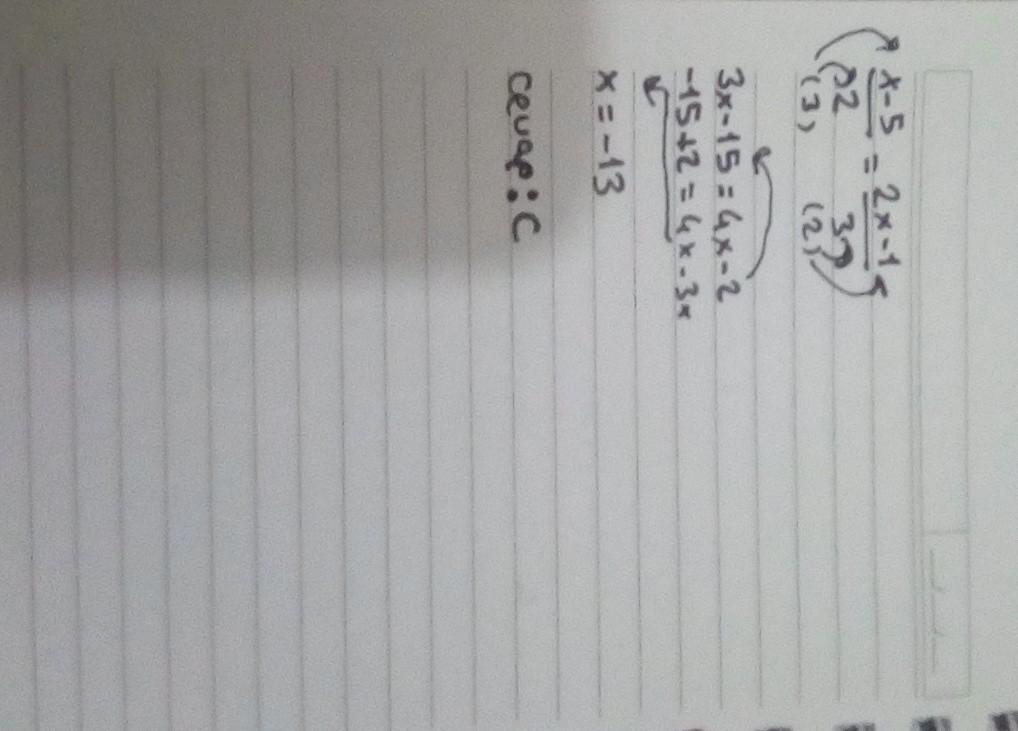 x-5 = 2x-1
2 3
(3) (2)
3x-15=4x-2
-15+2=4x-3x
x=-13
cevap:C